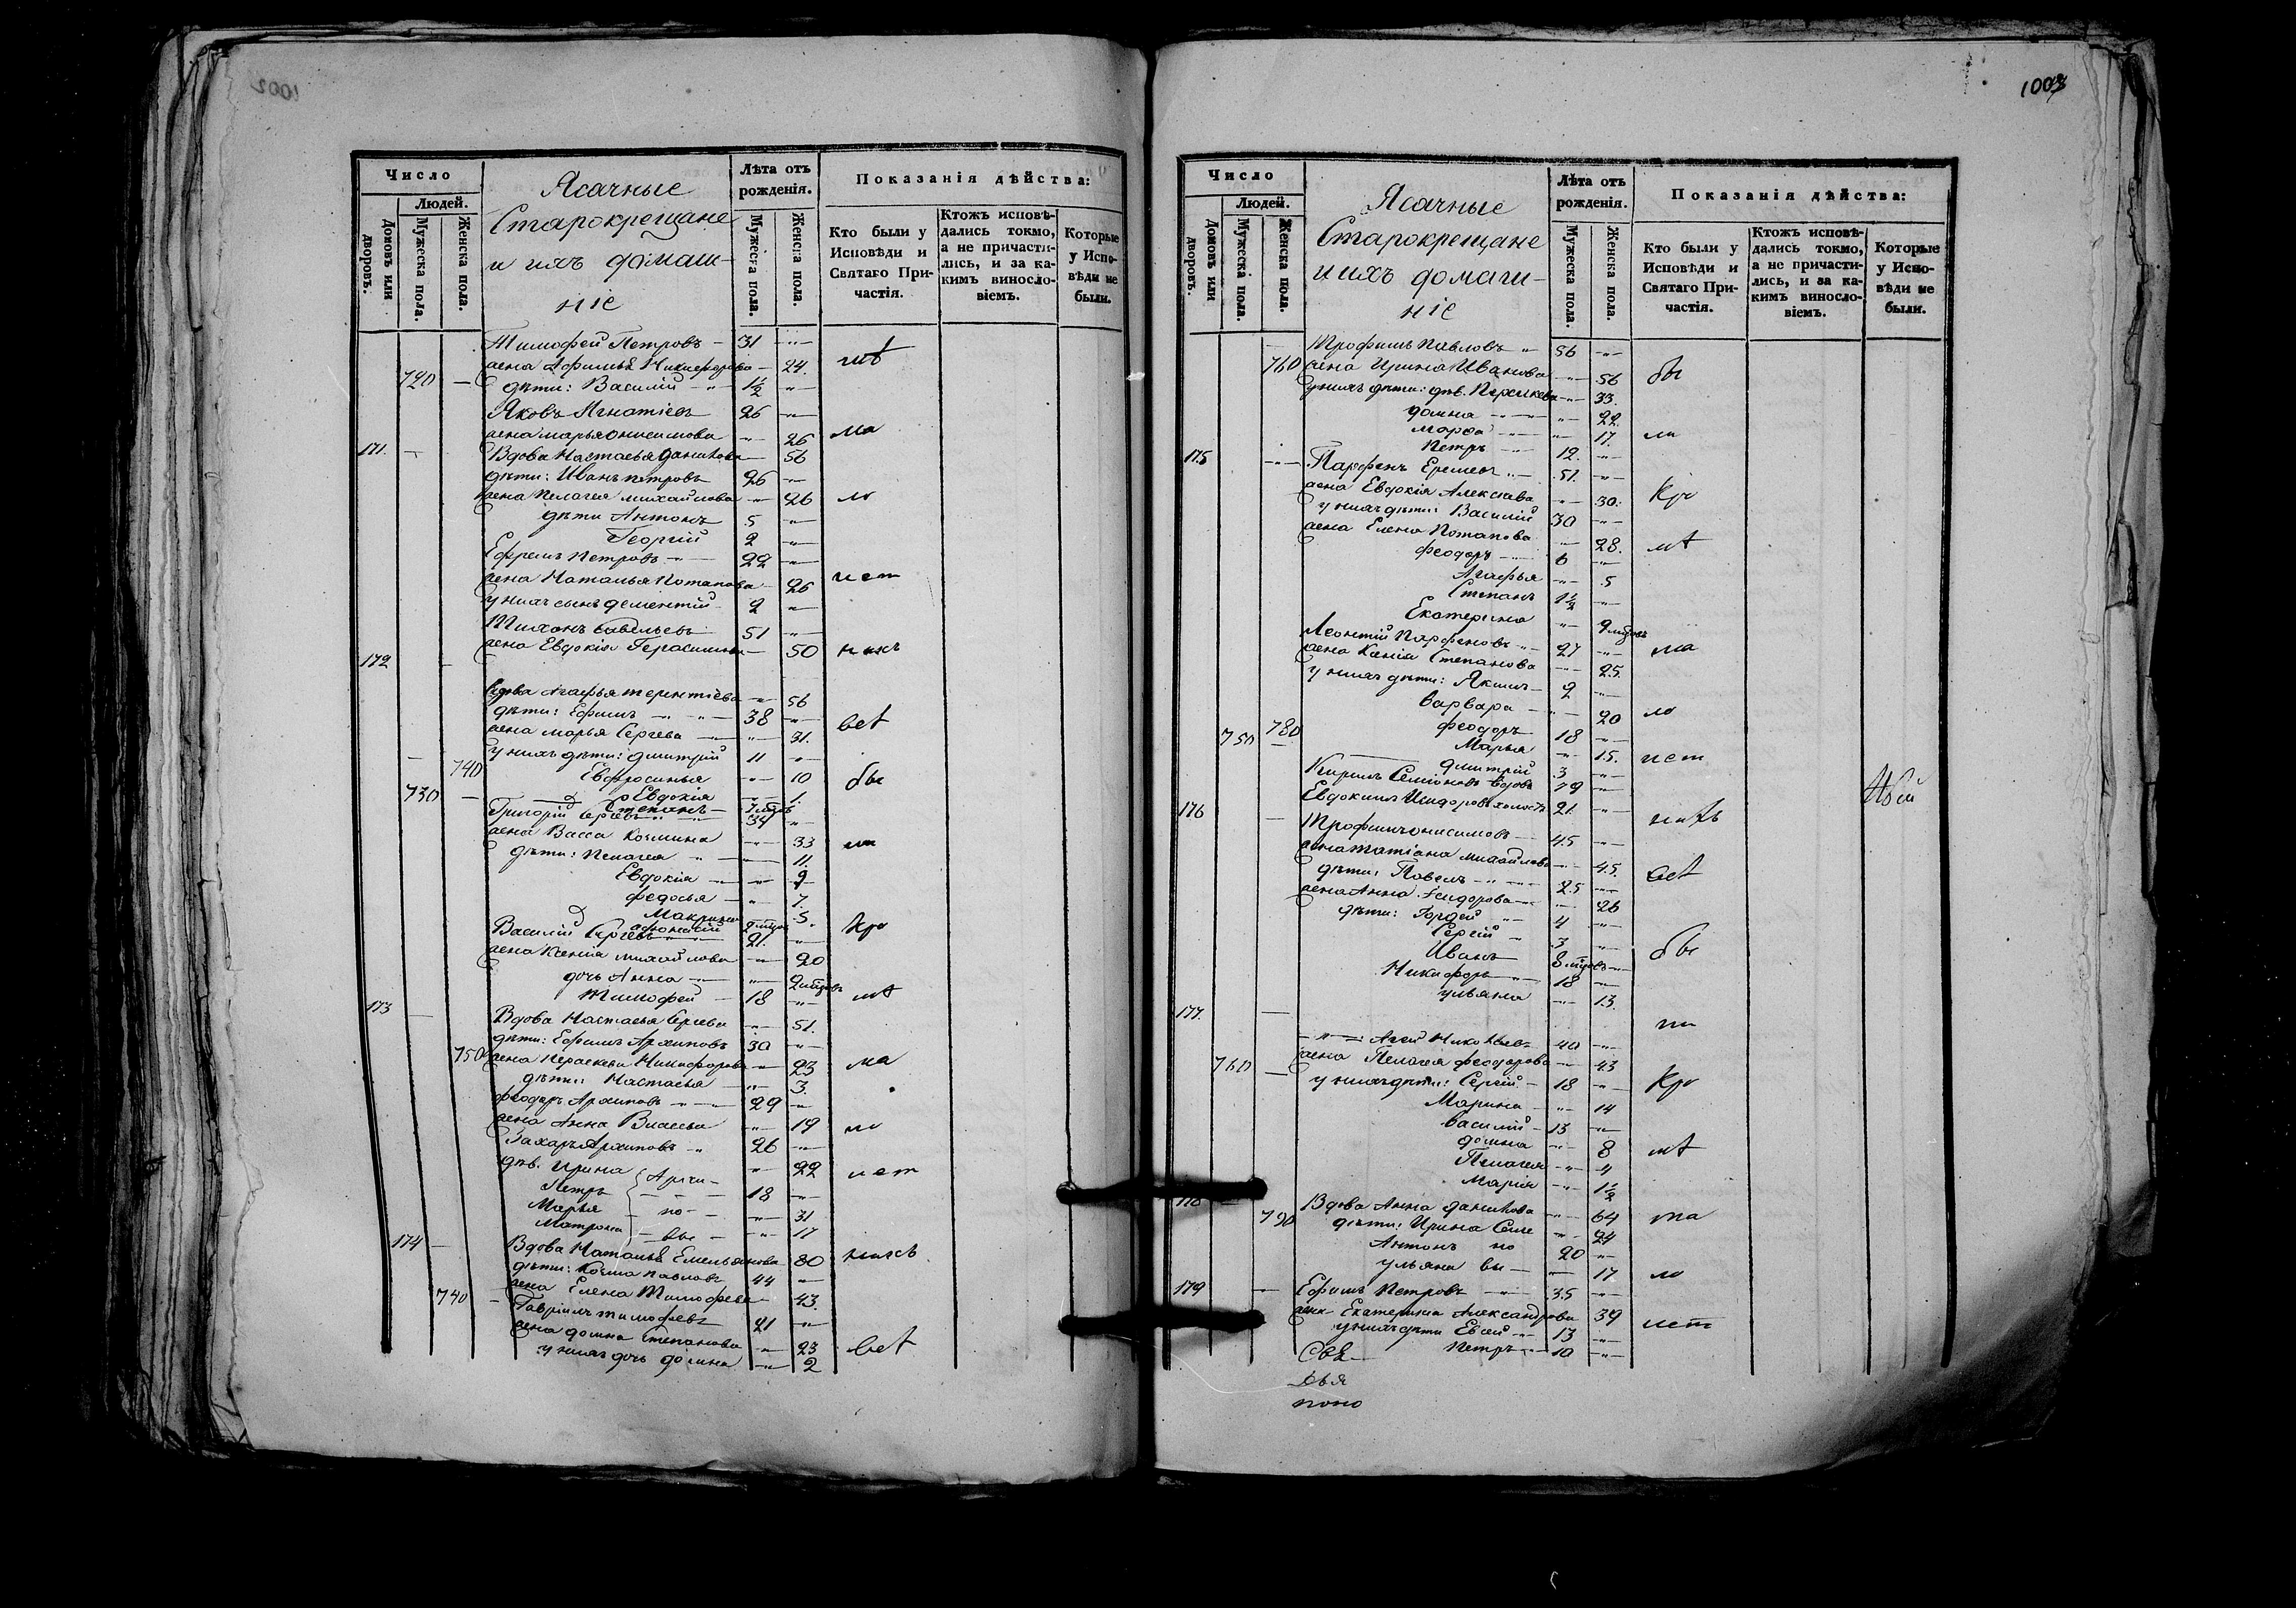 1002
Число
Людей.
Домовъ или дворовъ.
Мужеска пола.
Женска пола.
Ясачные
Старокрещане
и ихъ домаш-
ніе
Лѣта отъ рожденія.
Мужеска пола.
Женска пола.
Показанія дѣйства:
Кто были у Исповѣди и Святаго Причастія.
Ктожъ исповѣ-
дались токмо,
а не причасти-
лись, и за ка-
кимъ винносло-
віемъ.
Которые
у Испо-
вѣди не
были.
Тимофей Петровъ 31
жена Афимья Никифорова 24
720 дѣти: Василій 1½
Яковъ Игнатіевъ 26
жена Марья Онисимова 26
171. Вдова Настасья Данилова 56
дѣти: Иванъ Петровъ 26
жена Пелагея Михайлова 26
дѣти Антонъ 5
Георгій 2
Ефремъ Петровъ 22
жена Наталья Потапова 26
у нихъ сынъ Дементій 2
Тихонъ Савельевъ 51
172 жена Евдокія Герасимова 50
Вдова Агафья Терентіева 56
дѣти: Ефимъ 38
жена Марья Сергева 31.
у нихъ дѣти: Дмитрій 11
740 Евфросинья 10
730 Евдокія 1.
Степанъ
Григорій Сергевъ 34
жена Васса Козмина 33
дѣти: Пелагея 11.
Евдокія 9
Федосья 7.
Макрина 5
Афонасій
Василій Сергевъ 21.
жена Ксенія Михайлова 20
дочь Анна
Тимофей 18
173 Вдова Настасья Сергева 51.
дѣти: Ефимъ Архиповъ 30
750 жена Пераскева Никифорова 23
дѣти: Настасья 3.
Феодоръ Архиповъ 29
жена Анна Власева 19
Захаръ Архиповъ 26
дѣв. Ирина Архи- 22
Петръ 18
Марья по- 31
Матрона вы 17
174 Вдова Наталья Емельянова 80
дѣти: Козма Павловъ 44
740 жена Елена Тимофева 43.
Гаврилъ Тимофевъ 21
жена Домна Степанова 23
у нихъ дочь Домна 2
1003
Число
Людей.
Домовъ или дворовъ.
Мужеска пола.
Женска пола.
Ясачные
Старокрещане
и ихъ домаш-
ніе
Лѣта отъ рожденія.
Мужеска пола.
Женска пола.
Показанія дѣйства:
Кто были у Исповѣди и Святаго Причастія.
Ктожъ исповѣ-
дались токмо,
а не причасти-
лись, и за ка-
кимъ винносло-
віемъ.
Которые
у Испо-
вѣди не
были.
Трофимъ Павловъ 56
760 жена Ирина Иванова 56 бы
у нихъ дѣти: дѣв. Пераскева 33.
Домна 22.
Марфа 17. ли
Петръ 12.
175 Парфенъ Еремевъ 51.
жена Евдокія Алексева 30.
у нихъ дѣти: Василій 30
жена Елена Потапова 28.
Феодоръ 6
Агафья 5
Степанъ 1½
Екатерина
Леонтій Парфеновъ 27
жена Ксенія Степанова 25.
у нихъ дѣти: Якимъ 2
Варвара 20
750 780 Феодоръ 18
Марья 15.
Дмитрій 3
Кирилъ Семіоновъ вдовъ 79
176 Евдокимъ Исидоровъ холостъ 21.
Трофимъ Онисимовъ 45
жена Татіана Михайлова 45.
дѣти: Павелъ 25
жена Анна Исидорова 26
дѣти: Гордей 4
Сергій 3
Иванъ
Никифоръ 18
Ульяна 13.
177. Никитинъ 40
760 жена Пелагея Феодорова 43
у нихъ дѣти: Сергій 18
Марина 14
Василій 13
Домна 8
Пелагея 4
Марія 1½
178 Вдова Анна Данилова 64
790 дѣти: Ирина Семе 24
Антонъ но 20
Ульяна вы 17
179 Ефимъ Петровъ 35
жена Екатерина Александрова 39
у нихъ дѣти Евсей 13
Петръ 10
Свя
Дья
поно